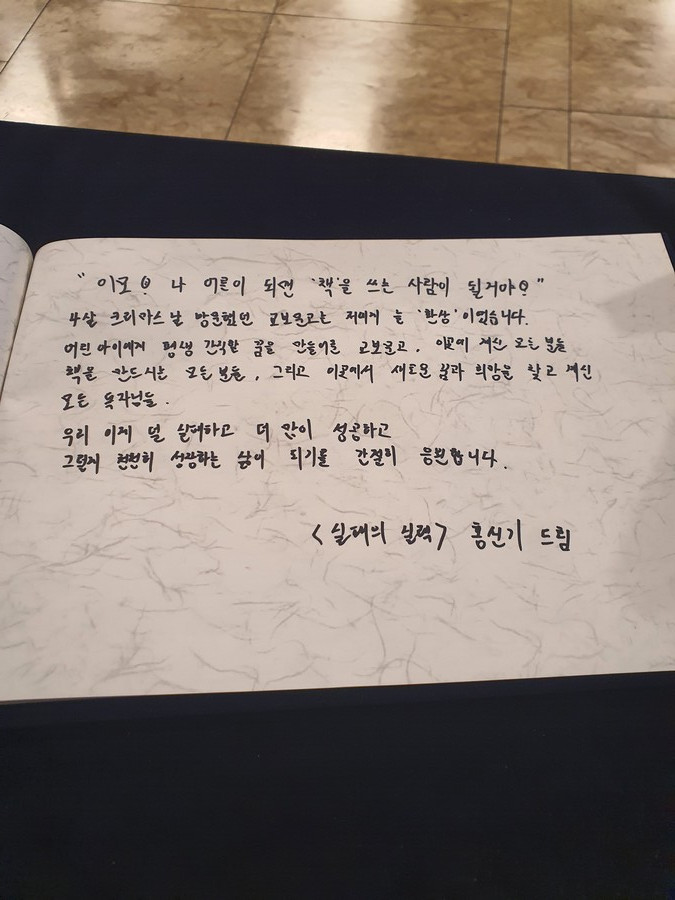 "이모! 나 어른이 되면 '책'을 쓰는 사람이 될거야!"
4살 크리마스날 방문했던 교보문고는 저에게 늘 '환상'이었습니다.
어린 아이에게 평생 간직할 꿈을 만들어준 교보문고, 이곳에 계신 모든 분들
책을 만드시는 모든 분들, 그리고 이곳에서 새로운 꿈과 희망을 찾고 계신
모든 독자님들.
우리 이제 덜 실패하고 더 많이 성공하고
그렇게 천천히 성장하는 삶이 되기를 간절히 응원합니다.
<실패의 실력> 홍신기 드림